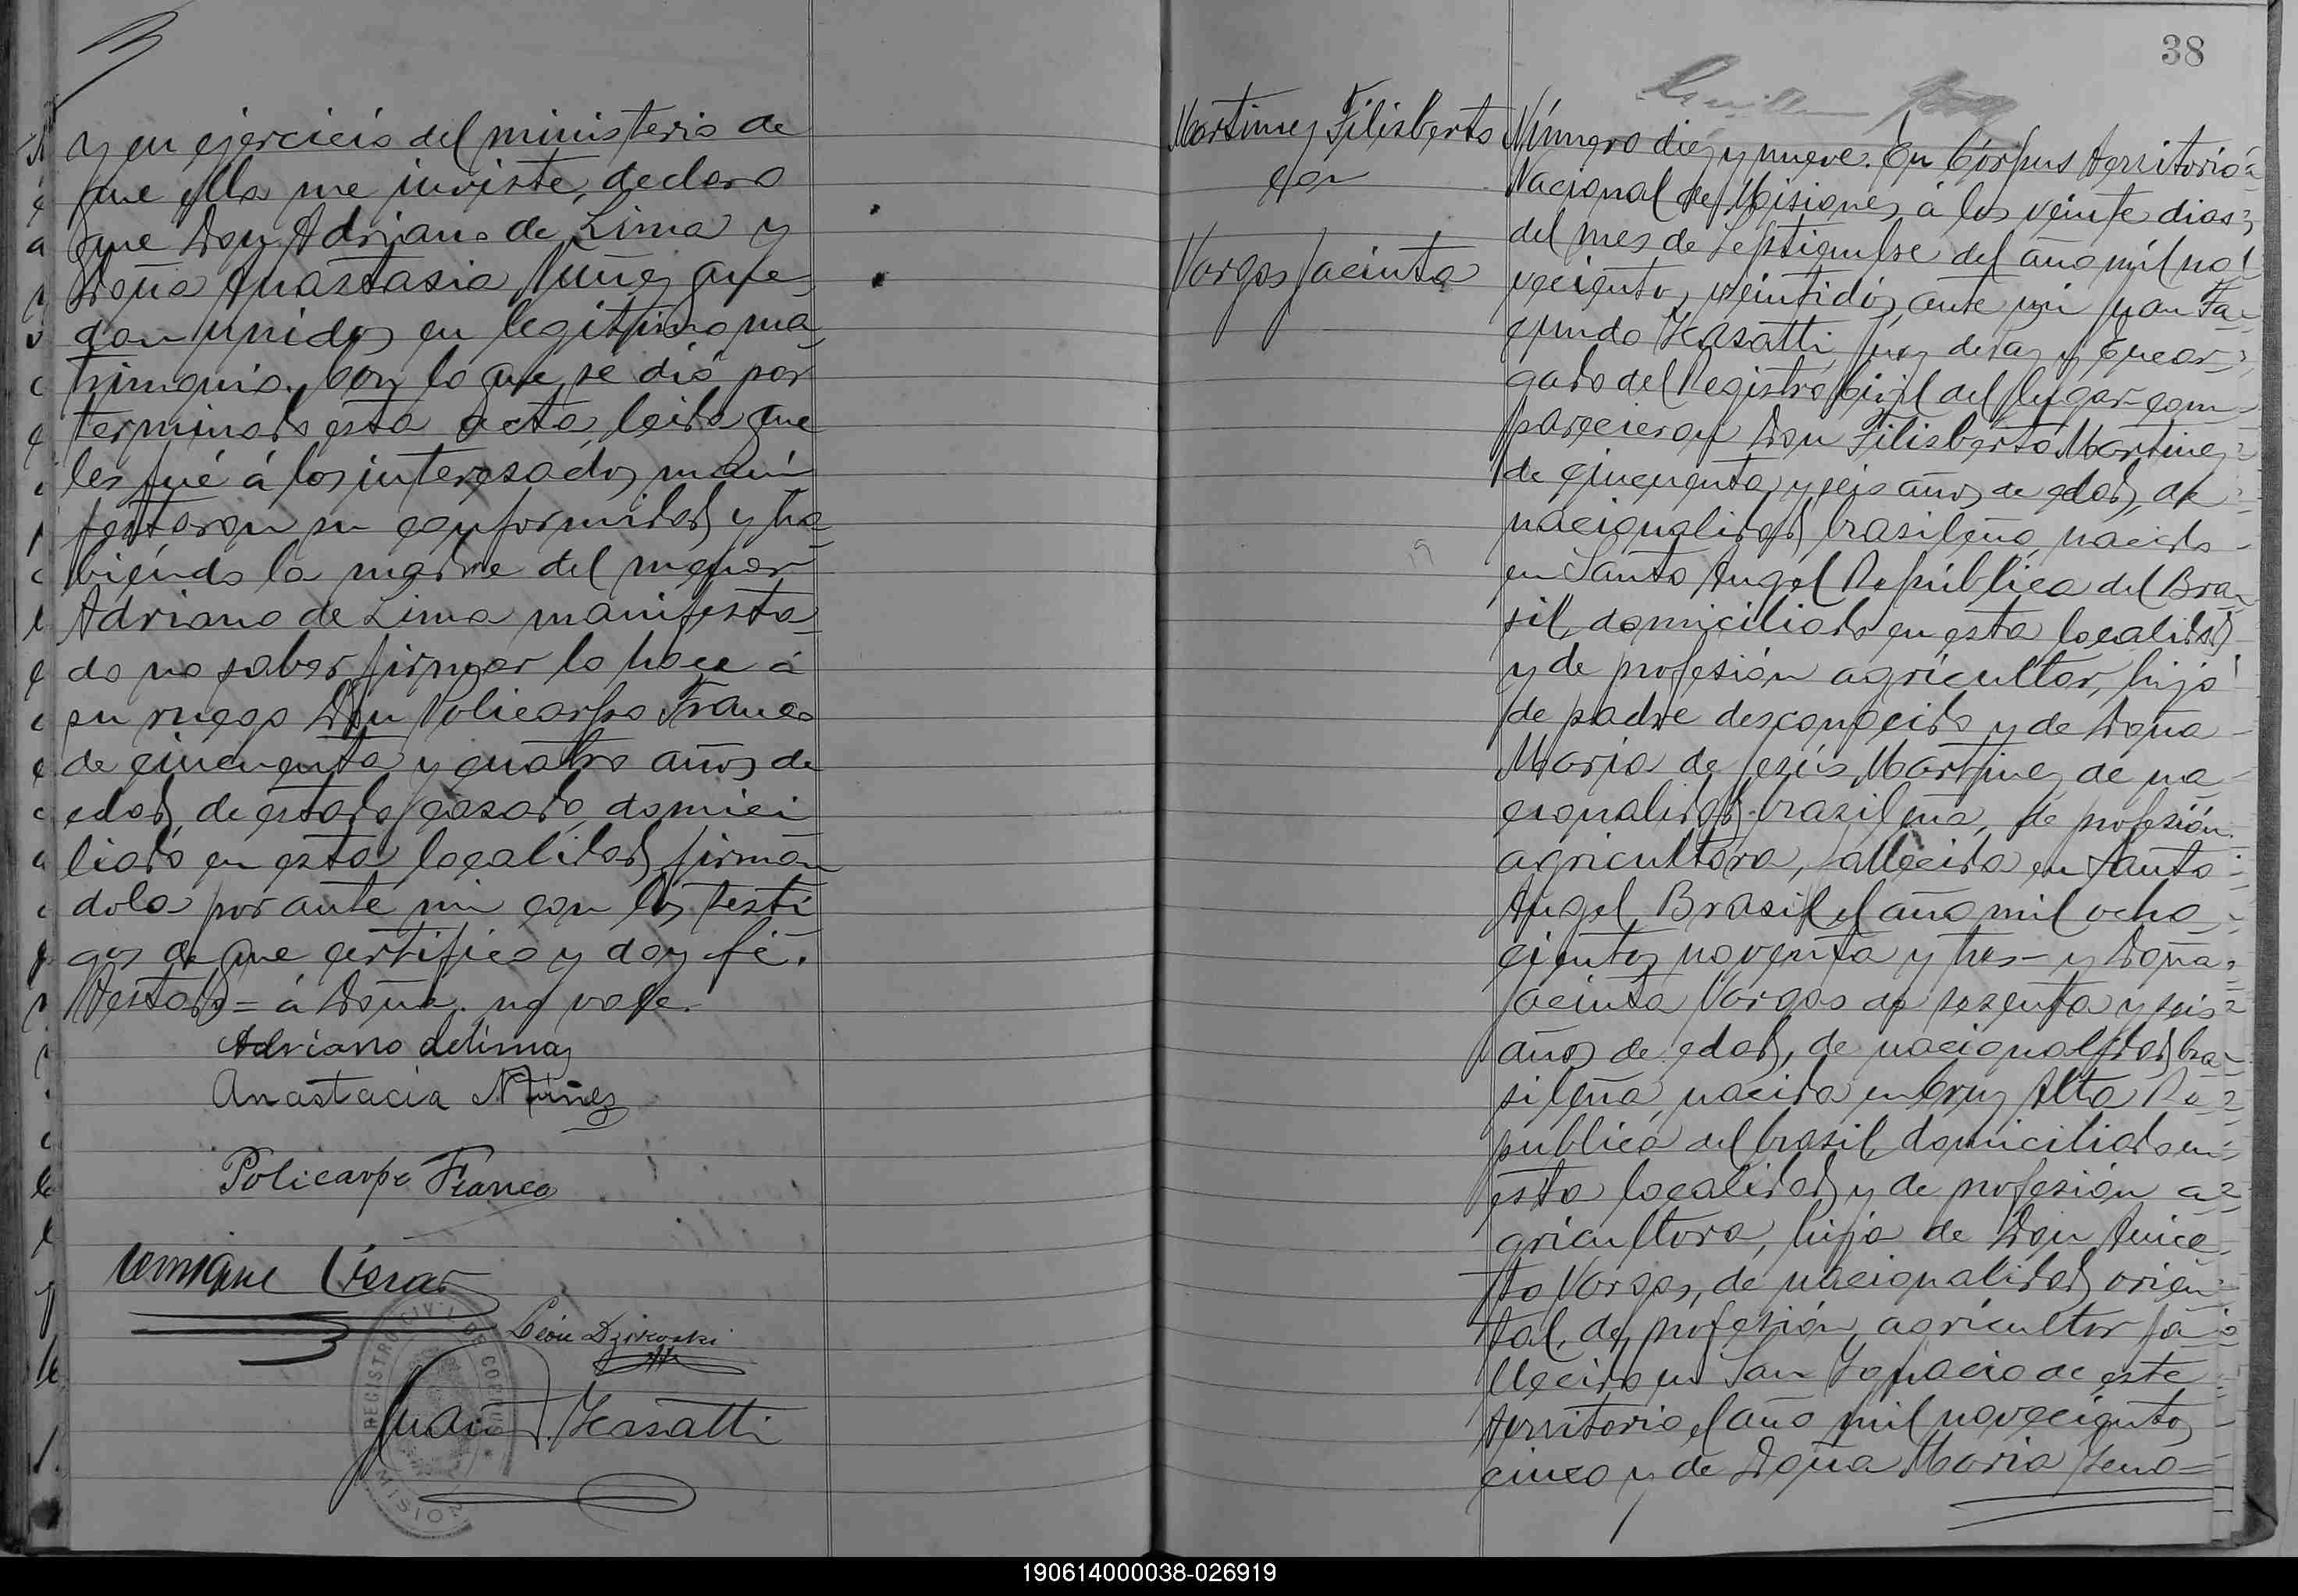 y en ejercicio del ministerio de
que ella me inviste, declaro
que Don Adriano de Lima y
Doña Anastasia Nuñez que
dan unidos en legitimo ma
trimonio. Con lo que se dió por
terminada esta acta, leida que
les fué á los interesados mani
festaron su conformidad y ha
biendo la madre del menor
Adriano de Lima manifesta
do no saber firmar lo hace á
su ruego Don Policarpo Franco
de cincuenta y cuatro años de
edad, de estado casado, domici
liado en esta localidad, firman
dola por ante mi con los testi
gos de que certifico y doy fé.
Testado = á Doña. no vale.
Adriano delima
Anastacia Nuñez
Policarpo Franco
León Dzikoski
Juan F.
REGISTRO CIVIL DE CORPUS
MISIONES
38
Martinez Filisberto
con
Vargas Jacinta
19
Número diez y nueve. En Córpus Territorio
Nacional de Misiones, á los veinte dias
del mes de Septiembre del año mil no
vecientos veintidós, ante mi Juan Fa
cundo Juez de Paz y Encar
gado del Registro Civil del lugar com
parecieron Don Filisberto Martinez
de cincuenta y seis años de edad, de
nacionalidad brasileña, nacido
en Santo Angel República del Bra
sil, domiciliado en esta localidad
y de profesión agricultor, hijo
de padre desconocido y de Doña
Maria de Jezús Martinez de na
cionalidad brazileña, de profesión
agricultora, fallecida en Santo
Angel Brasil el año mil ocho
cientos noventa y tres - y Doña
Jacinta Vargas de sesenta y seis
años de edad, de nacionalidad bra
sileña, nacida en Cruz Alta Re
publica del brasil, domiciliada en
esta localidad y de profesión a
gricultora, hija de Don Anice
to Vargas, de nacionalidad orien
tal, de profesión agricultor fa
llecido en San Ygnacio de este
Territorio el año mil novecientos
cinco y de Doña Maria
190614000038-026919